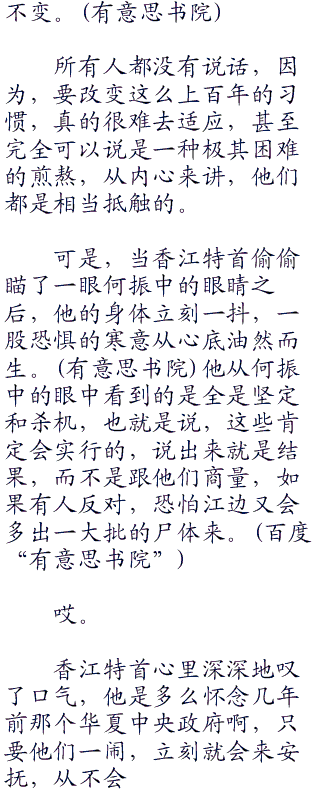 不变。(有意思书院)
所有人都没有说话，因
为，要改变这么上百年的习
惯，真的很难去适应，甚至
完全可以说是一种极其困难
的煎熬，从内心来讲，他们
都是相当抵触的。
可是，当香江特首偷偷
瞄了一眼何振中的眼睛之
后，他的身体立刻一抖，一
股恐惧的寒意从心底油然而
生。(有意思书院)他从何振
中的眼中看到的是全是坚定
和杀机，也就是说，这些肯
定会实行的，说出来就是结
果，而不是跟他们商量，如
果有人反对，恐怕江边又会
多出一大批的尸体来。(百度
“有意思书院”)
哎。
香江特首心里深深地叹
了口气，他是多么怀念几年
前那个华夏中央政府啊，只
要他们一闹，立刻就会来安
抚，从不会